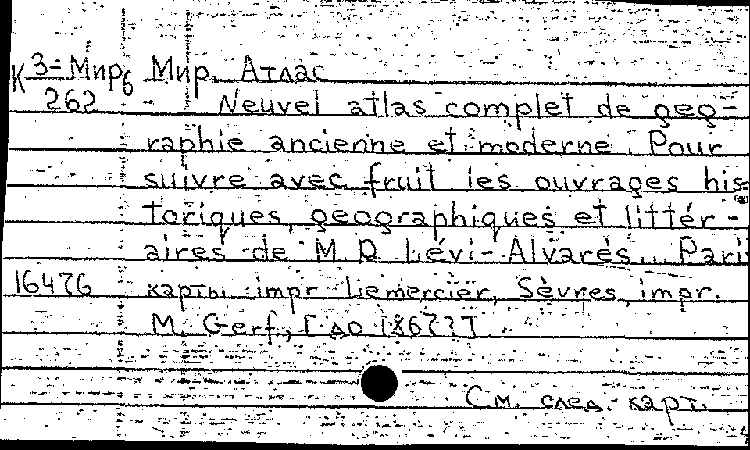 К 3-Мирб Мир. Атлас
262 - Neuvel atlas complet de geog-
raphie ancienne et moderne. Pour
suivre avec fruit les ouvrages his-
toriques, geographiques et littér-
aires de M. D. Lévi-Alvarès. Pari
16476 карты impr Liemercier, Sèvres, impr.
M. Gerf., [до 1867?]
См. след. карт.